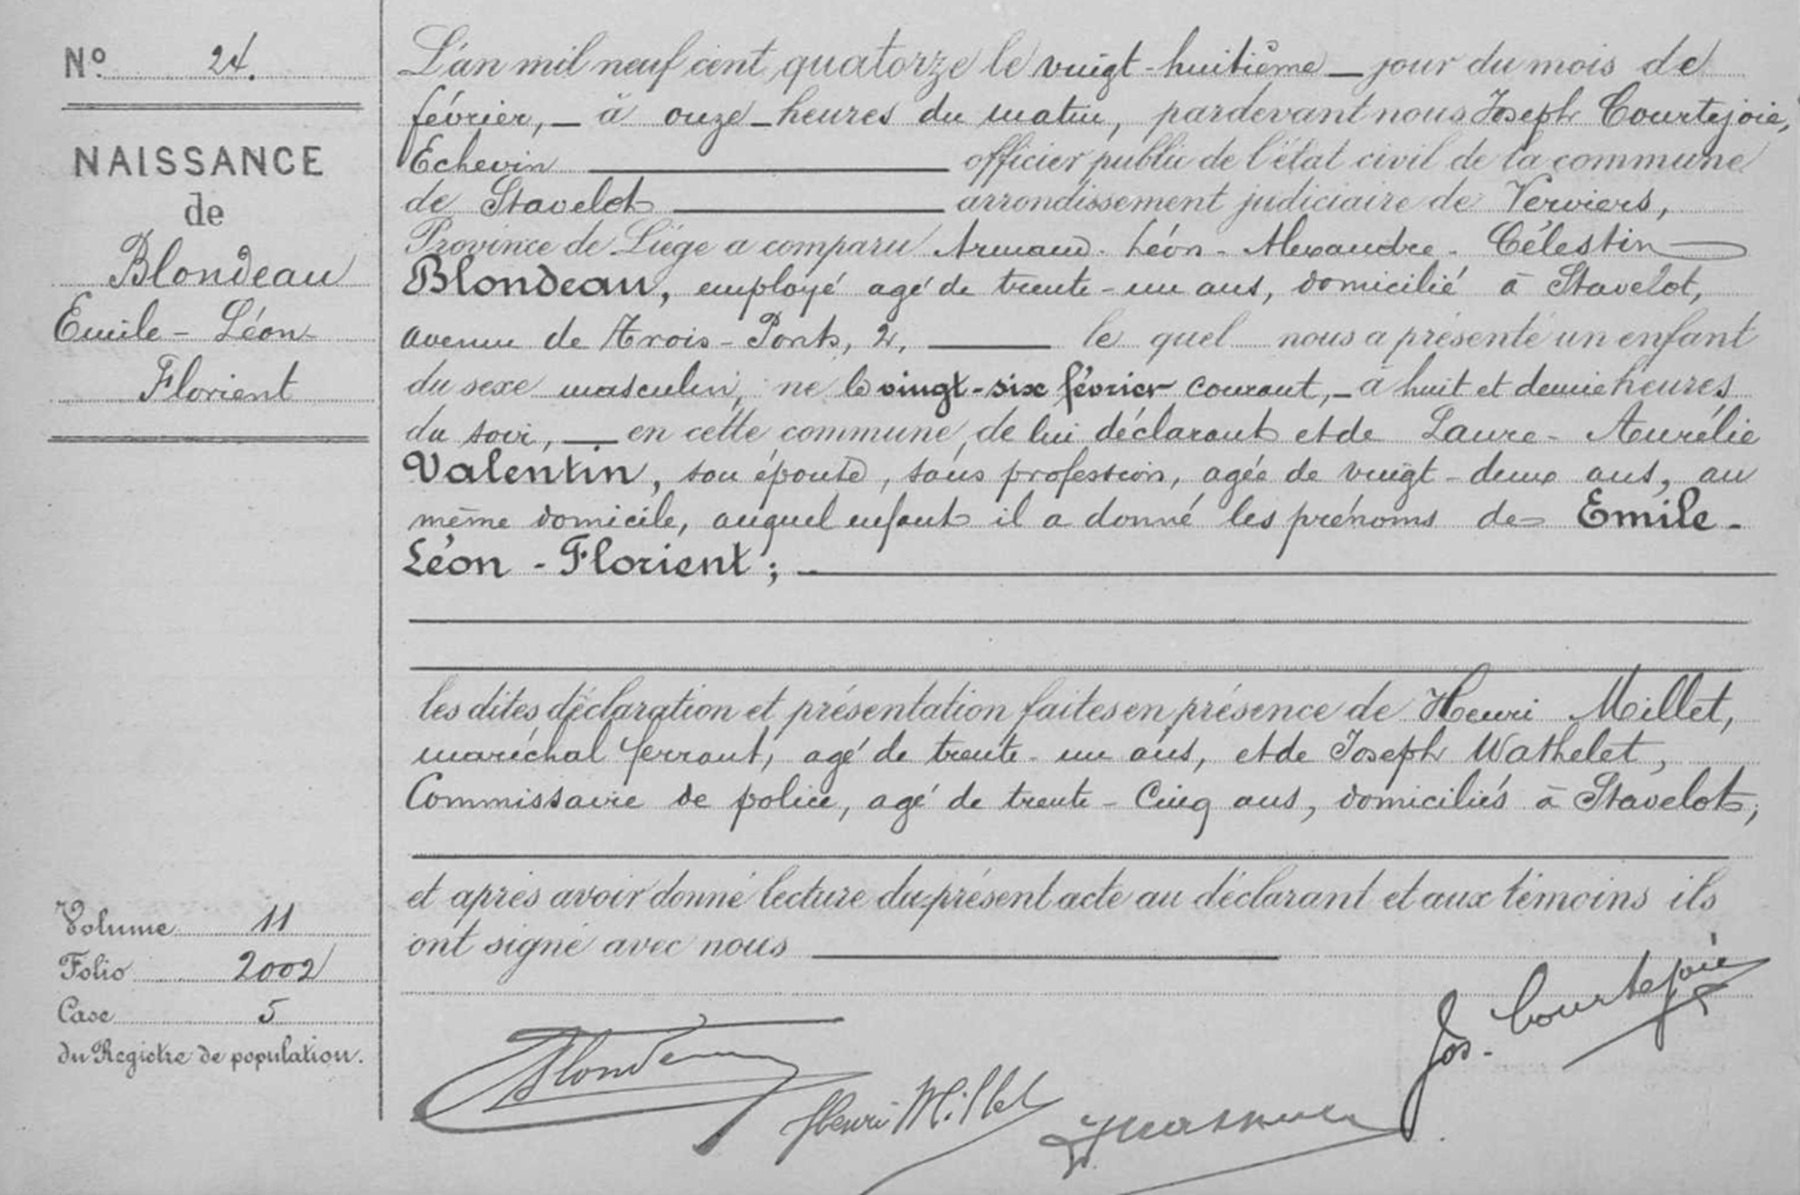 Nº 24.
NAISSANCE
de
Blondeau
Emile - Léon
Florient
L'an mil neuf cent quatorze le vingt-huitième — jour du mois de
février, — à onze — heures du matin, pardevant nous Joseph Courtejoie,
Echevin officier public de l'état civil de la commune
de Stavelot arrondissement judiciaire de Verviers,
Province de Liége a comparu Armand - Léon - Alexandre - Célestin
Blondeau, employé agé de trente-un ans, domicilié à Stavelot,
avenue de Trois-Ponts, 2, le quel nous a présenté un enfant
du sexe masculin, né le vingt-six février courant, — à huit et demie heures
du soir, — en cette commune, de lui déclarant et de Laure - Aurélie
Valentin, son épouse, sans profession, agée de vingt-deux ans, au
même domicile, auquel enfant il a donné les prénoms de Emile -
Léon - Florient ; —
les dites déclaration et présentation faites en présence de Henri Millet,
maréchal ferrant, agé de trente-un ans, et de Joseph Wathelet,
Commissaire de police, agé de trente-cinq ans, domiciliés à Stavelot;
et après avoir donné lecture du présent acte au déclarant et aux témoins ils
ont signé avec nous
Volume 11
Folio 2002
Case 5
du Registre de population.
Jos. Courtejoie
Blondeau
Henri Millet